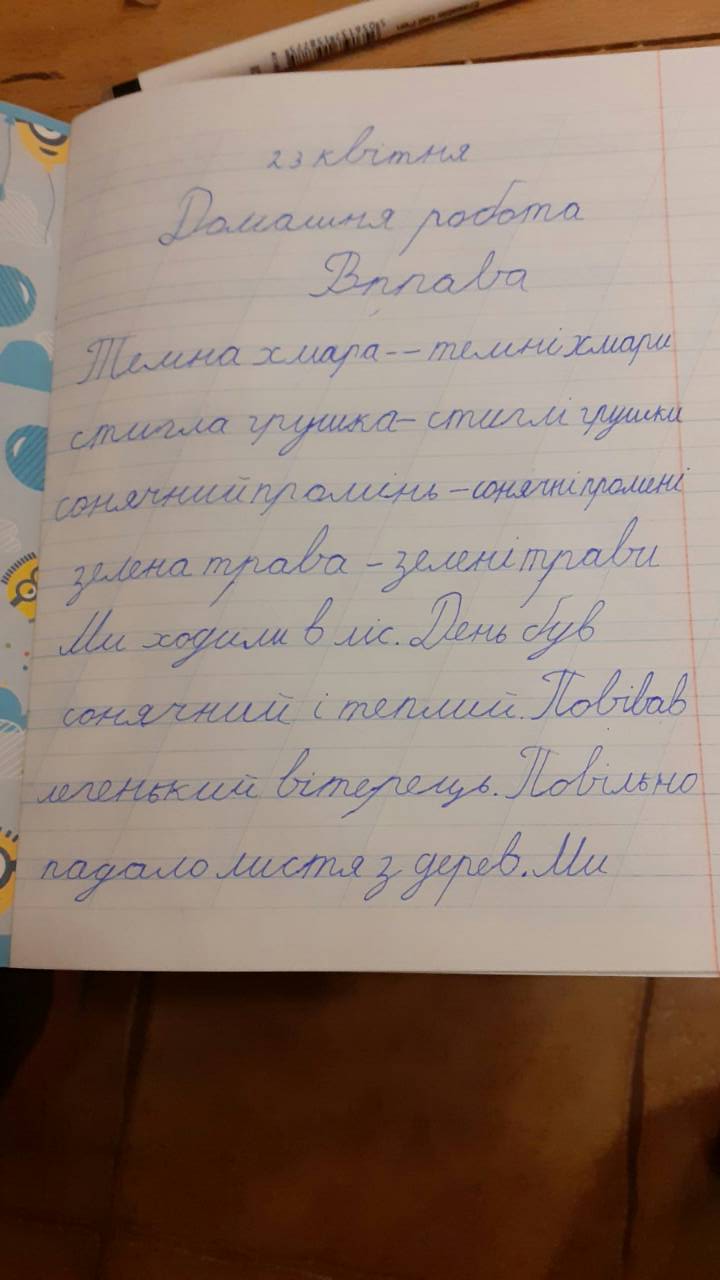 23 квітня
Домашня робота
Вправа
Темна хмара -- темні хмари
стигла грушка - стиглі грушки
сонячний промінь - сонячні промені
зелена трава - зелені трави
Ми ходили в ліс. День був
сонячний і теплий. Повівав
легенький вітерець. Повільно
падало листя з дерев. Ми